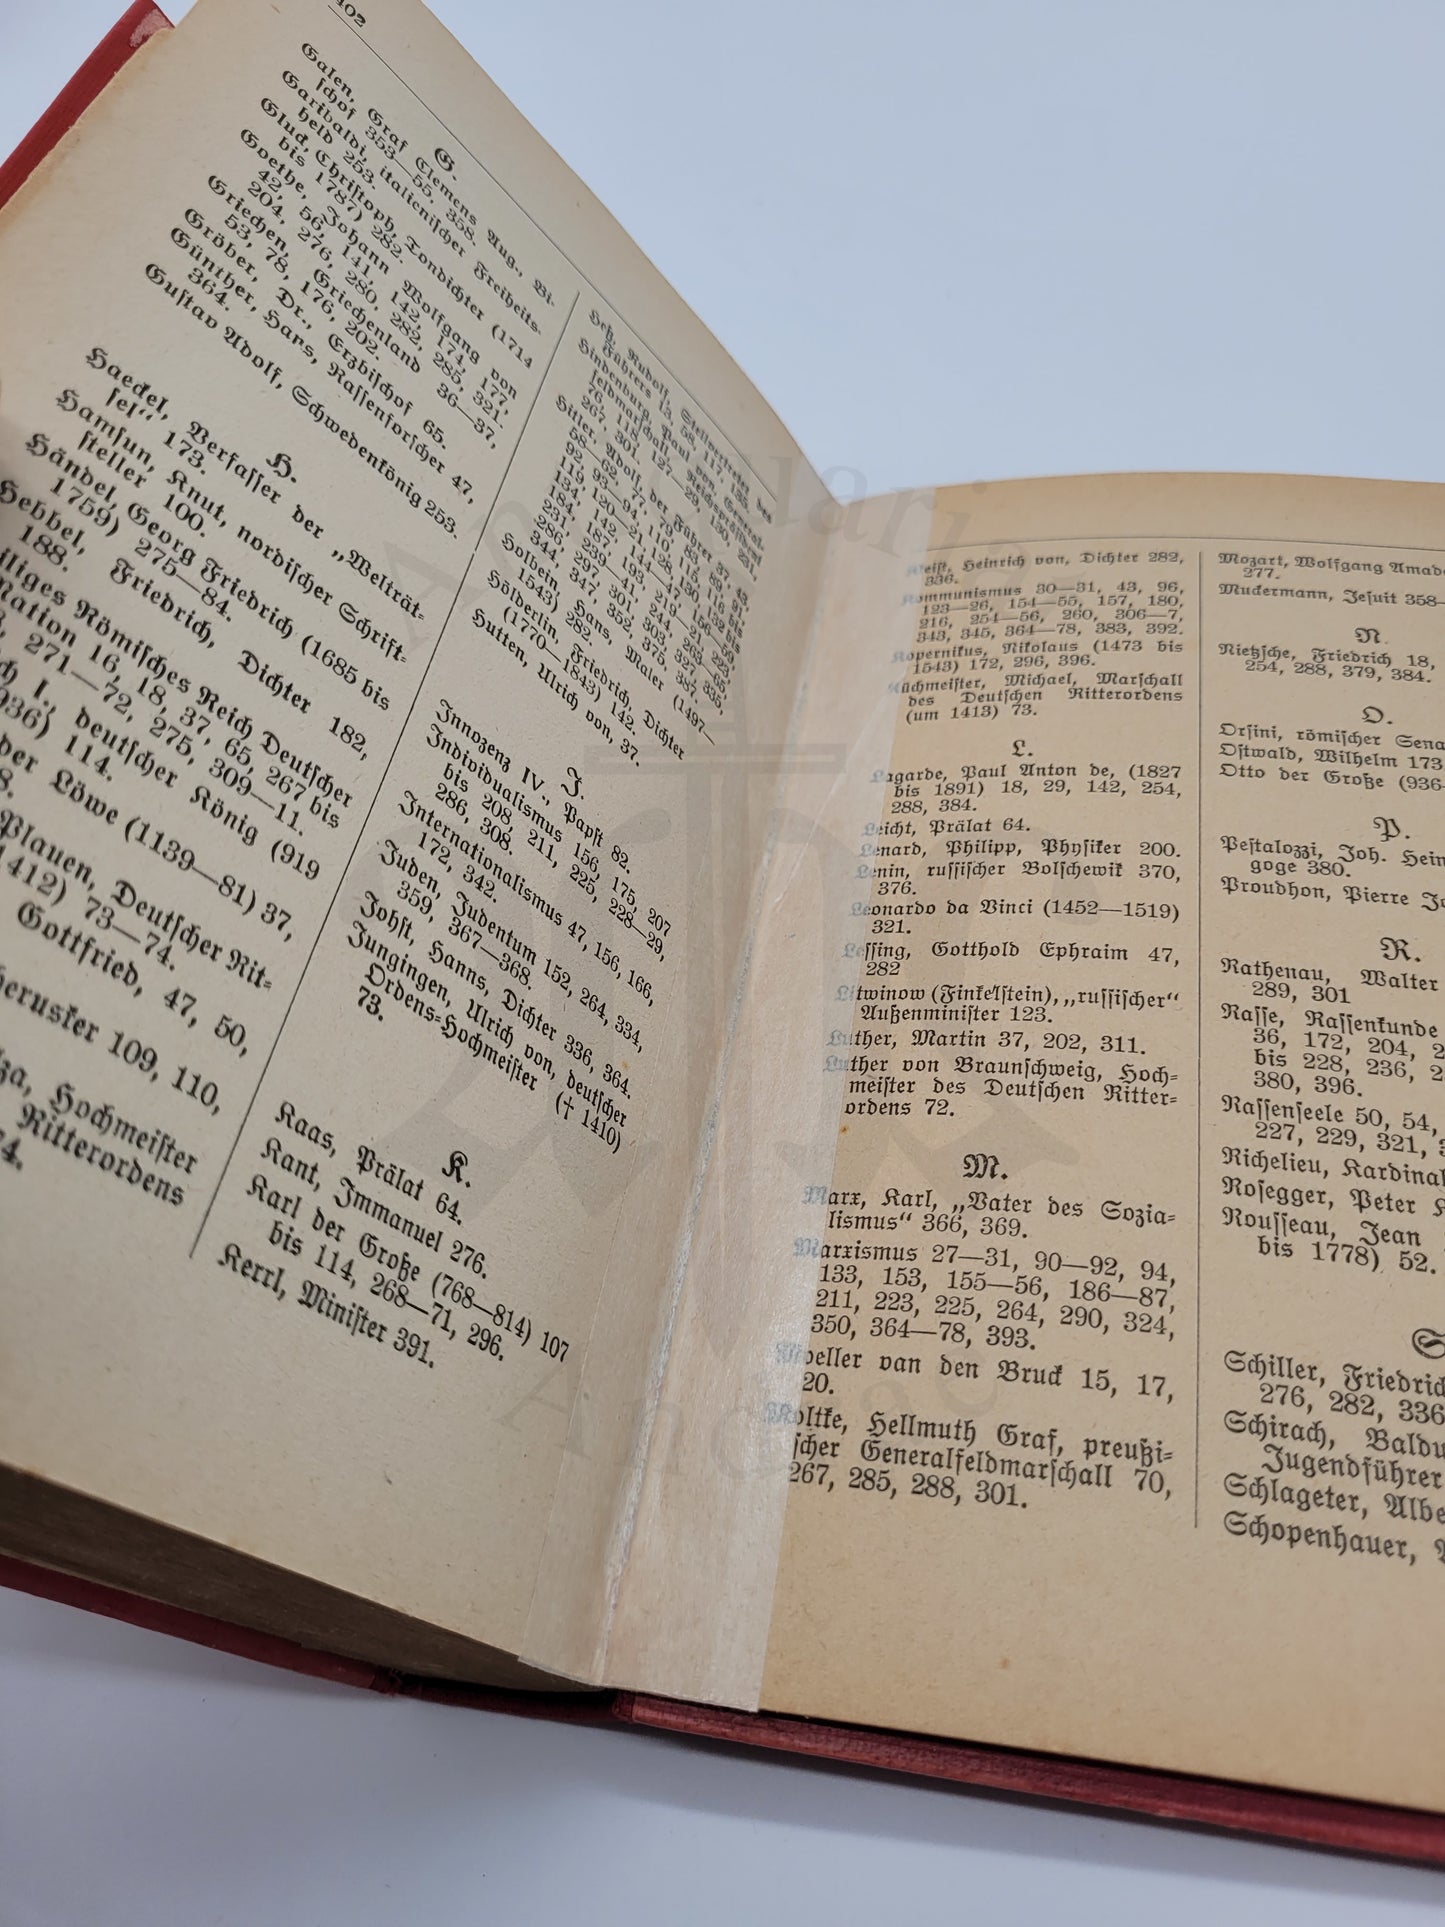 402
G.
Galen, Graf Clemens Aug., Bi-
schof 353—55, 358.
Garibaldi, italienischer Freiheits-
held 253.
Gluck, Christoph, Tondichter (1714
bis 1787) 282.
Goethe, Johann Wolfgang von
42, 56, 141, 142, 174, 177,
204, 276, 280, 282, 285, 321.
Griechen, Griechenland 36—37,
53, 78, 176, 202.
Gröber, Dr., Erzbischof 65.
Günther, Hans, Rassenforscher 47,
364.
Gustav Adolf, Schwedenkönig 253.
H.
Haeckel, Verfasser der „Welträt-
sel“ 173.
Hamsun, Knut, nordischer Schrift-
steller 100.
Händel, Georg Friedrich (1685 bis
1759) 275—84.
Hebbel, Friedrich, Dichter 182,
188.
iliges Römisches Reich Deutscher
Nation 16, 18, 37, 65, 267 bis
271—72, 275, 309—11.
ch I., deutscher König (919
936) 114.
der Löwe (1139—81) 37,
8.
Plauen, Deutscher Rit-
1412) 73—74.
Gottfried, 47, 50,
herusker 109, 110,
za, Hochmeister
Ritterordens
74.
Heß, Rudolf, Stellvertreter des
Führers 13, 58, 117, 135.
Hindenburg, Paul von, General-
feldmarschall, Reichspräsident
76, 118, 127—29, 130, 231,
267, 301.
Hitler, Adolf, der Führer 37, 43,
58—62, 77, 79, 83, 89, 91,
Holbein, Hans, Maler (1497—
1543) 282.
Hölderlin, Friedrich, Dichter
(1770—1843) 142.
Hutten, Ulrich von, 37.
J.
Innozenz IV., Papst 82.
Individualismus 156, 175, 207
bis 208, 211, 225, 228—29,
286, 308.
Internationalismus 47, 156, 166,
172, 342.
Juden, Judentum 152, 264, 334,
359, 367—368.
Johst, Hanns, Dichter 336, 364.
Jungingen, Ulrich von, deutscher
Ordens-Hochmeister († 1410)
73.
K.
Kaas, Prälat 64.
Kant, Immanuel 276.
Karl der Große (768—814) 107
bis 114, 268—71, 296.
Kerrl, Minister 391.
Kleist, Heinrich von, Dichter 282,
336.
Kommunismus 30—31, 43, 96,
123—26, 154—55, 157, 180,
216, 254—56, 260, 306—7,
343, 345, 364—78, 383, 392.
Kopernikus, Nikolaus (1473 bis
1543) 172, 296, 396.
Küchmeister, Michael, Marschall
des Deutschen Ritterordens
(um 1413) 73.
L.
Lagarde, Paul Anton de, (1827
bis 1891) 18, 29, 142, 254,
288, 384.
Leicht, Prälat 64.
Lenard, Philipp, Physiker 200.
Lenin, russischer Bolschewik 370,
376.
Leonardo da Vinci (1452—1519)
321.
Lessing, Gotthold Ephraim 47,
282
Litwinow (Finkelstein), „russischer“
Außenminister 123.
Luther, Martin 37, 202, 311.
Luther von Braunschweig, Hoch-
meister des Deutschen Ritter-
ordens 72.
M.
Marx, Karl, „Vater des Sozia-
lismus“ 366, 369.
Marxismus 27—31, 90—92, 94,
133, 153, 155—56, 186—87,
211, 223, 225, 264, 290, 324,
350, 364—78, 393.
Moeller van den Bruck 15, 17,
20.
Moltke, Hellmuth Graf, preußi-
scher Generalfeldmarschall 70,
267, 285, 288, 301.
Mozart, Wolfgang Amade
277.
Muckermann, Jesuit 358—
N.
Nietzsche, Friedrich 18,
254, 288, 379, 384.
O.
Orsini, römischer Sena
Ostwald, Wilhelm 173
Otto der Große (936-
P.
Pestalozzi, Joh. Hein
goge 380.
Proudhon, Pierre Jo
R.
Rathenau, Walter
289, 301
Rasse, Rassenkunde
36, 172, 204, 2
bis 228, 236, 2
380, 396.
Rassenseele 50, 54,
227, 229, 321, 3
Richelieu, Kardinal
Rosegger, Peter K
Rousseau, Jean
bis 1778) 52.
S
Schiller, Friedrich
276, 282, 336
Schirach, Baldu
Jugendführer
Schlageter, Albe
Schopenhauer,